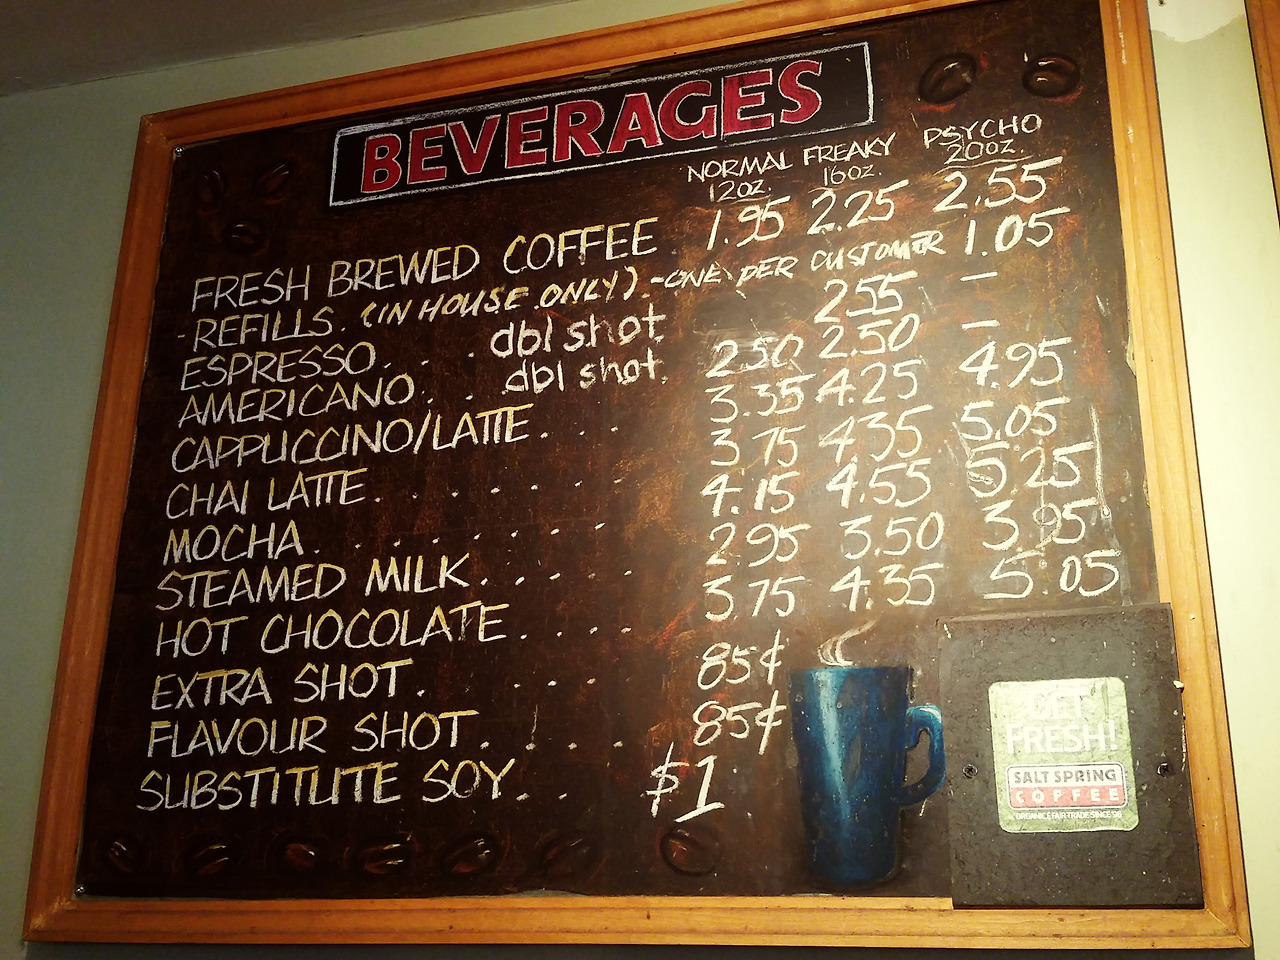 BEVERAGES
NORMAL FREAKY PSYCHO
12oz. 16oz. 20oz.
FRESH BREWED COFFEE. 1.95 2.25 2.55
-REFILLS. (IN HOUSE ONLY) -ONE PER CUSTOMER 1.05
ESPRESSO. . . dbl shot. 2.55 —
AMERICANO. . . dbl shot. 2.50 2.50 —
CAPPUCCINO/LATTE. . . 3.35 4.25 4.95
CHAI LATTE. . . . . . 3.75 4.35 5.05
MOCHA. . . . . . . . 4.15 4.55 5.25
STEAMED MILK. . . . 2.95 3.50 3.95
HOT CHOCOLATE. . . . 3.75 4.35 5.05
EXTRA SHOT. . . . . 85¢
FLAVOUR SHOT. . . . 85¢
SUBSTITUTE SOY. . . $1
GET
FRESH!
SALT SPRING
COFFEE
ORGANIC & FAIR TRADE SINCE 96